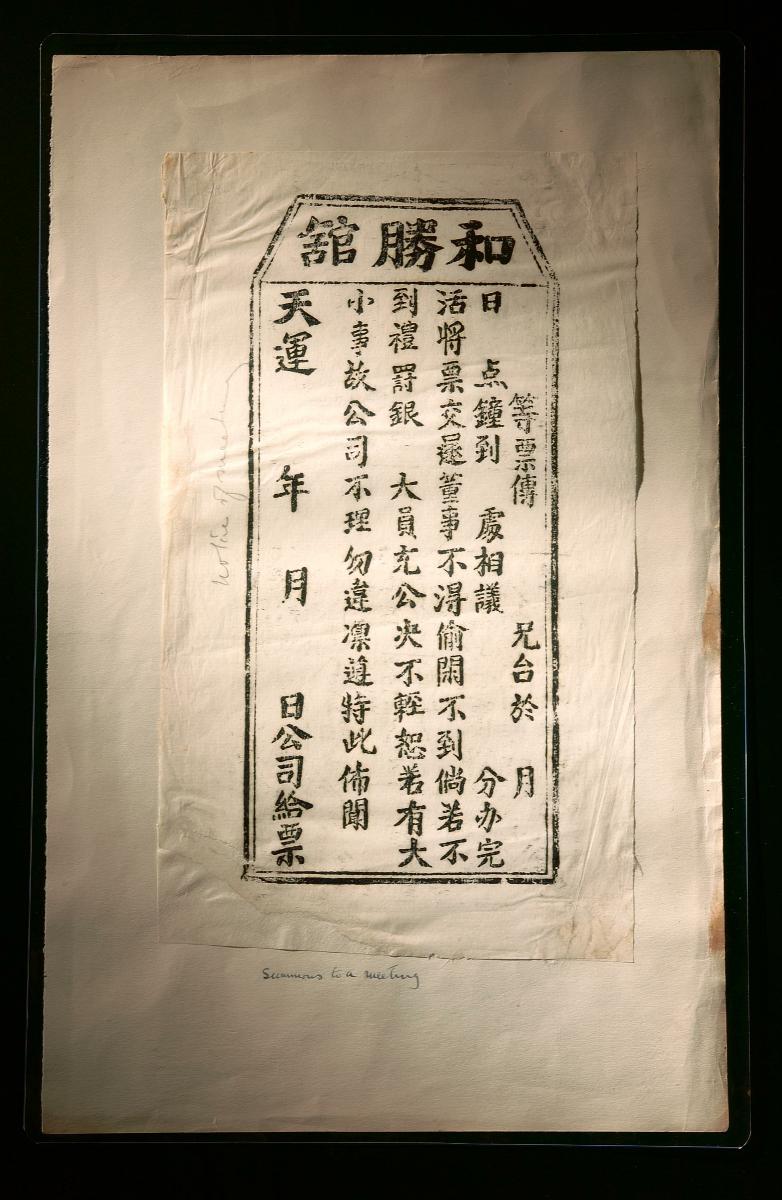 和勝舘
等票傳 兄台於 月
日 点鐘到 處相議 分办完
活將票交還董事不淂偷閑不到倘若不
到禮罸銀 大員充公决不輕恕若有大
小事故公司不理勿違凛遵特此佈聞
天運 年 月 日公司給票
notice of meeting
Summons to a meeting